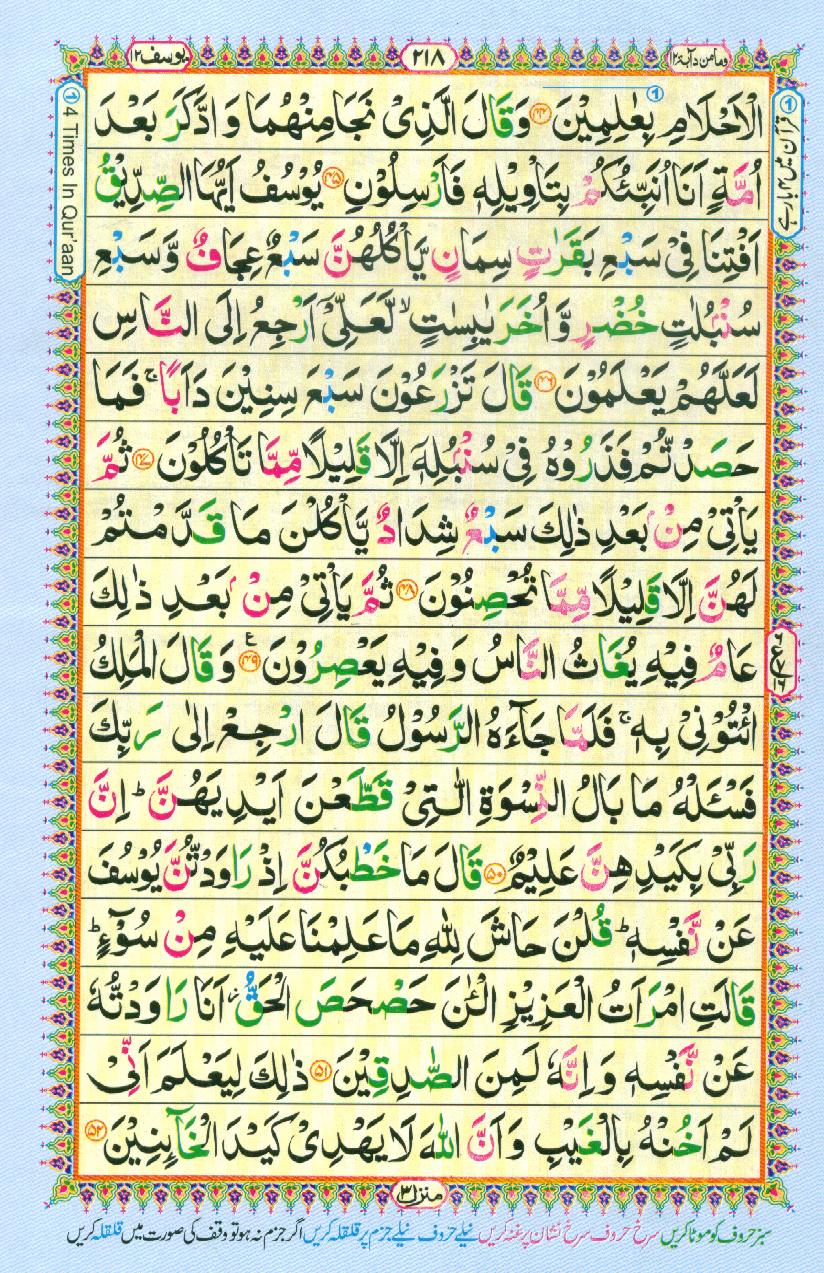 وما من دآبة ۱۲
۲۱۸
یوسف ۱۲
۱
قرآن میں ۴ بار ہے
① 4 Times In Qur'aan
الْاَحْلَامِ بِعٰلِمِیْنَ ﴿۴۴﴾ وَقَالَ الَّذِیْ نَجَا مِنْهُمَا وَ ادَّكَرَ بَعْدَ
اُمَّةٍ اَنَا اُنَبِّئُكُمْ بِتَاْوِیْلِهٖ فَاَرْسِلُوْنِ ﴿۴۵﴾ یُوْسُفُ اَیُّهَا الصِّدِّیْقُ
اَفْتِنَا فِیْ سَبْعِ بَقَرٰتٍ سِمَانٍ یَّاْكُلُهُنَّ سَبْعٌ عِجَافٌ وَّ سَبْعِ
سُنْۢبُلٰتٍ خُضْرٍ وَّ اُخَرَ یٰبِسٰتٍ ۙ لَّعَلِّیْۤ اَرْجِعُ اِلَی النَّاسِ
لَعَلَّهُمْ یَعْلَمُوْنَ ﴿۴۶﴾ قَالَ تَزْرَعُوْنَ سَبْعَ سِنِیْنَ دَاَبًا ۚ فَمَا
حَصَدْتُّمْ فَذَرُوْهُ فِیْ سُنْۢبُلِهٖۤ اِلَّا قَلِیْلًا مِّمَّا تَاْكُلُوْنَ ﴿۴۷﴾ ثُمَّ
یَاْتِیْ مِنْۢ بَعْدِ ذٰلِكَ سَبْعٌ شِدَادٌ یَّاْكُلْنَ مَا قَدَّمْتُمْ
لَهُنَّ اِلَّا قَلِیْلًا مِّمَّا تُحْصِنُوْنَ ﴿۴۸﴾ ثُمَّ یَاْتِیْ مِنْۢ بَعْدِ ذٰلِكَ
عَامٌ فِیْهِ یُغَاثُ النَّاسُ وَ فِیْهِ یَعْصِرُوْنَ ﴿۴۹﴾ ع وَ قَالَ الْمَلِكُ
ائْتُوْنِیْ بِهٖ ۚ فَلَمَّا جَآءَهُ الرَّسُوْلُ قَالَ ارْجِعْ اِلٰی رَبِّكَ
فَسْـَٔلْهُ مَا بَالُ النِّسْوَةِ الّٰتِیْ قَطَّعْنَ اَیْدِیَهُنَّ ؕ اِنَّ
رَبِّیْ بِكَیْدِهِنَّ عَلِیْمٌ ﴿۵۰﴾ قَالَ مَا خَطْبُكُنَّ اِذْ رَاوَدْتُّنَّ یُوْسُفَ
عَنْ نَّفْسِهٖ ؕ قُلْنَ حَاشَ لِلّٰهِ مَا عَلِمْنَا عَلَیْهِ مِنْ سُوْٓءٍ ؕ
قَالَتِ امْرَاَتُ الْعَزِیْزِ الْـٰٔنَ حَصْحَصَ الْحَقُّ ۫ اَنَا رَاوَدْتُّهٗ
عَنْ نَّفْسِهٖ وَ اِنَّهٗ لَمِنَ الصّٰدِقِیْنَ ﴿۵۱﴾ ذٰلِكَ لِیَعْلَمَ اَنِّیْ
لَمْ اَخُنْهُ بِالْغَیْبِ وَ اَنَّ اللّٰهَ لَا یَهْدِیْ كَیْدَ الْخَآئِنِیْنَ ﴿۵۲﴾
منزل ۳
سبز حروف کو موٹا کریں سرخ حروف سرخ نشان پر غنہ کریں نیلے حروف نیلے جزم پر قلقلہ کریں اگر جزم نہ ہو تو وقف کی صورت میں قلقلہ کریں